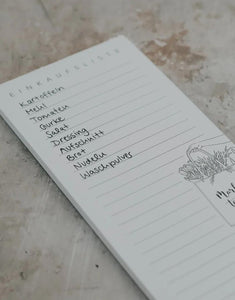 EINKAUFSLISTE
Kartoffeln
Mehl
Tomaten
Gurke
Salat
Dressing
Aufschnitt
Brot
Nudeln
Waschpulver